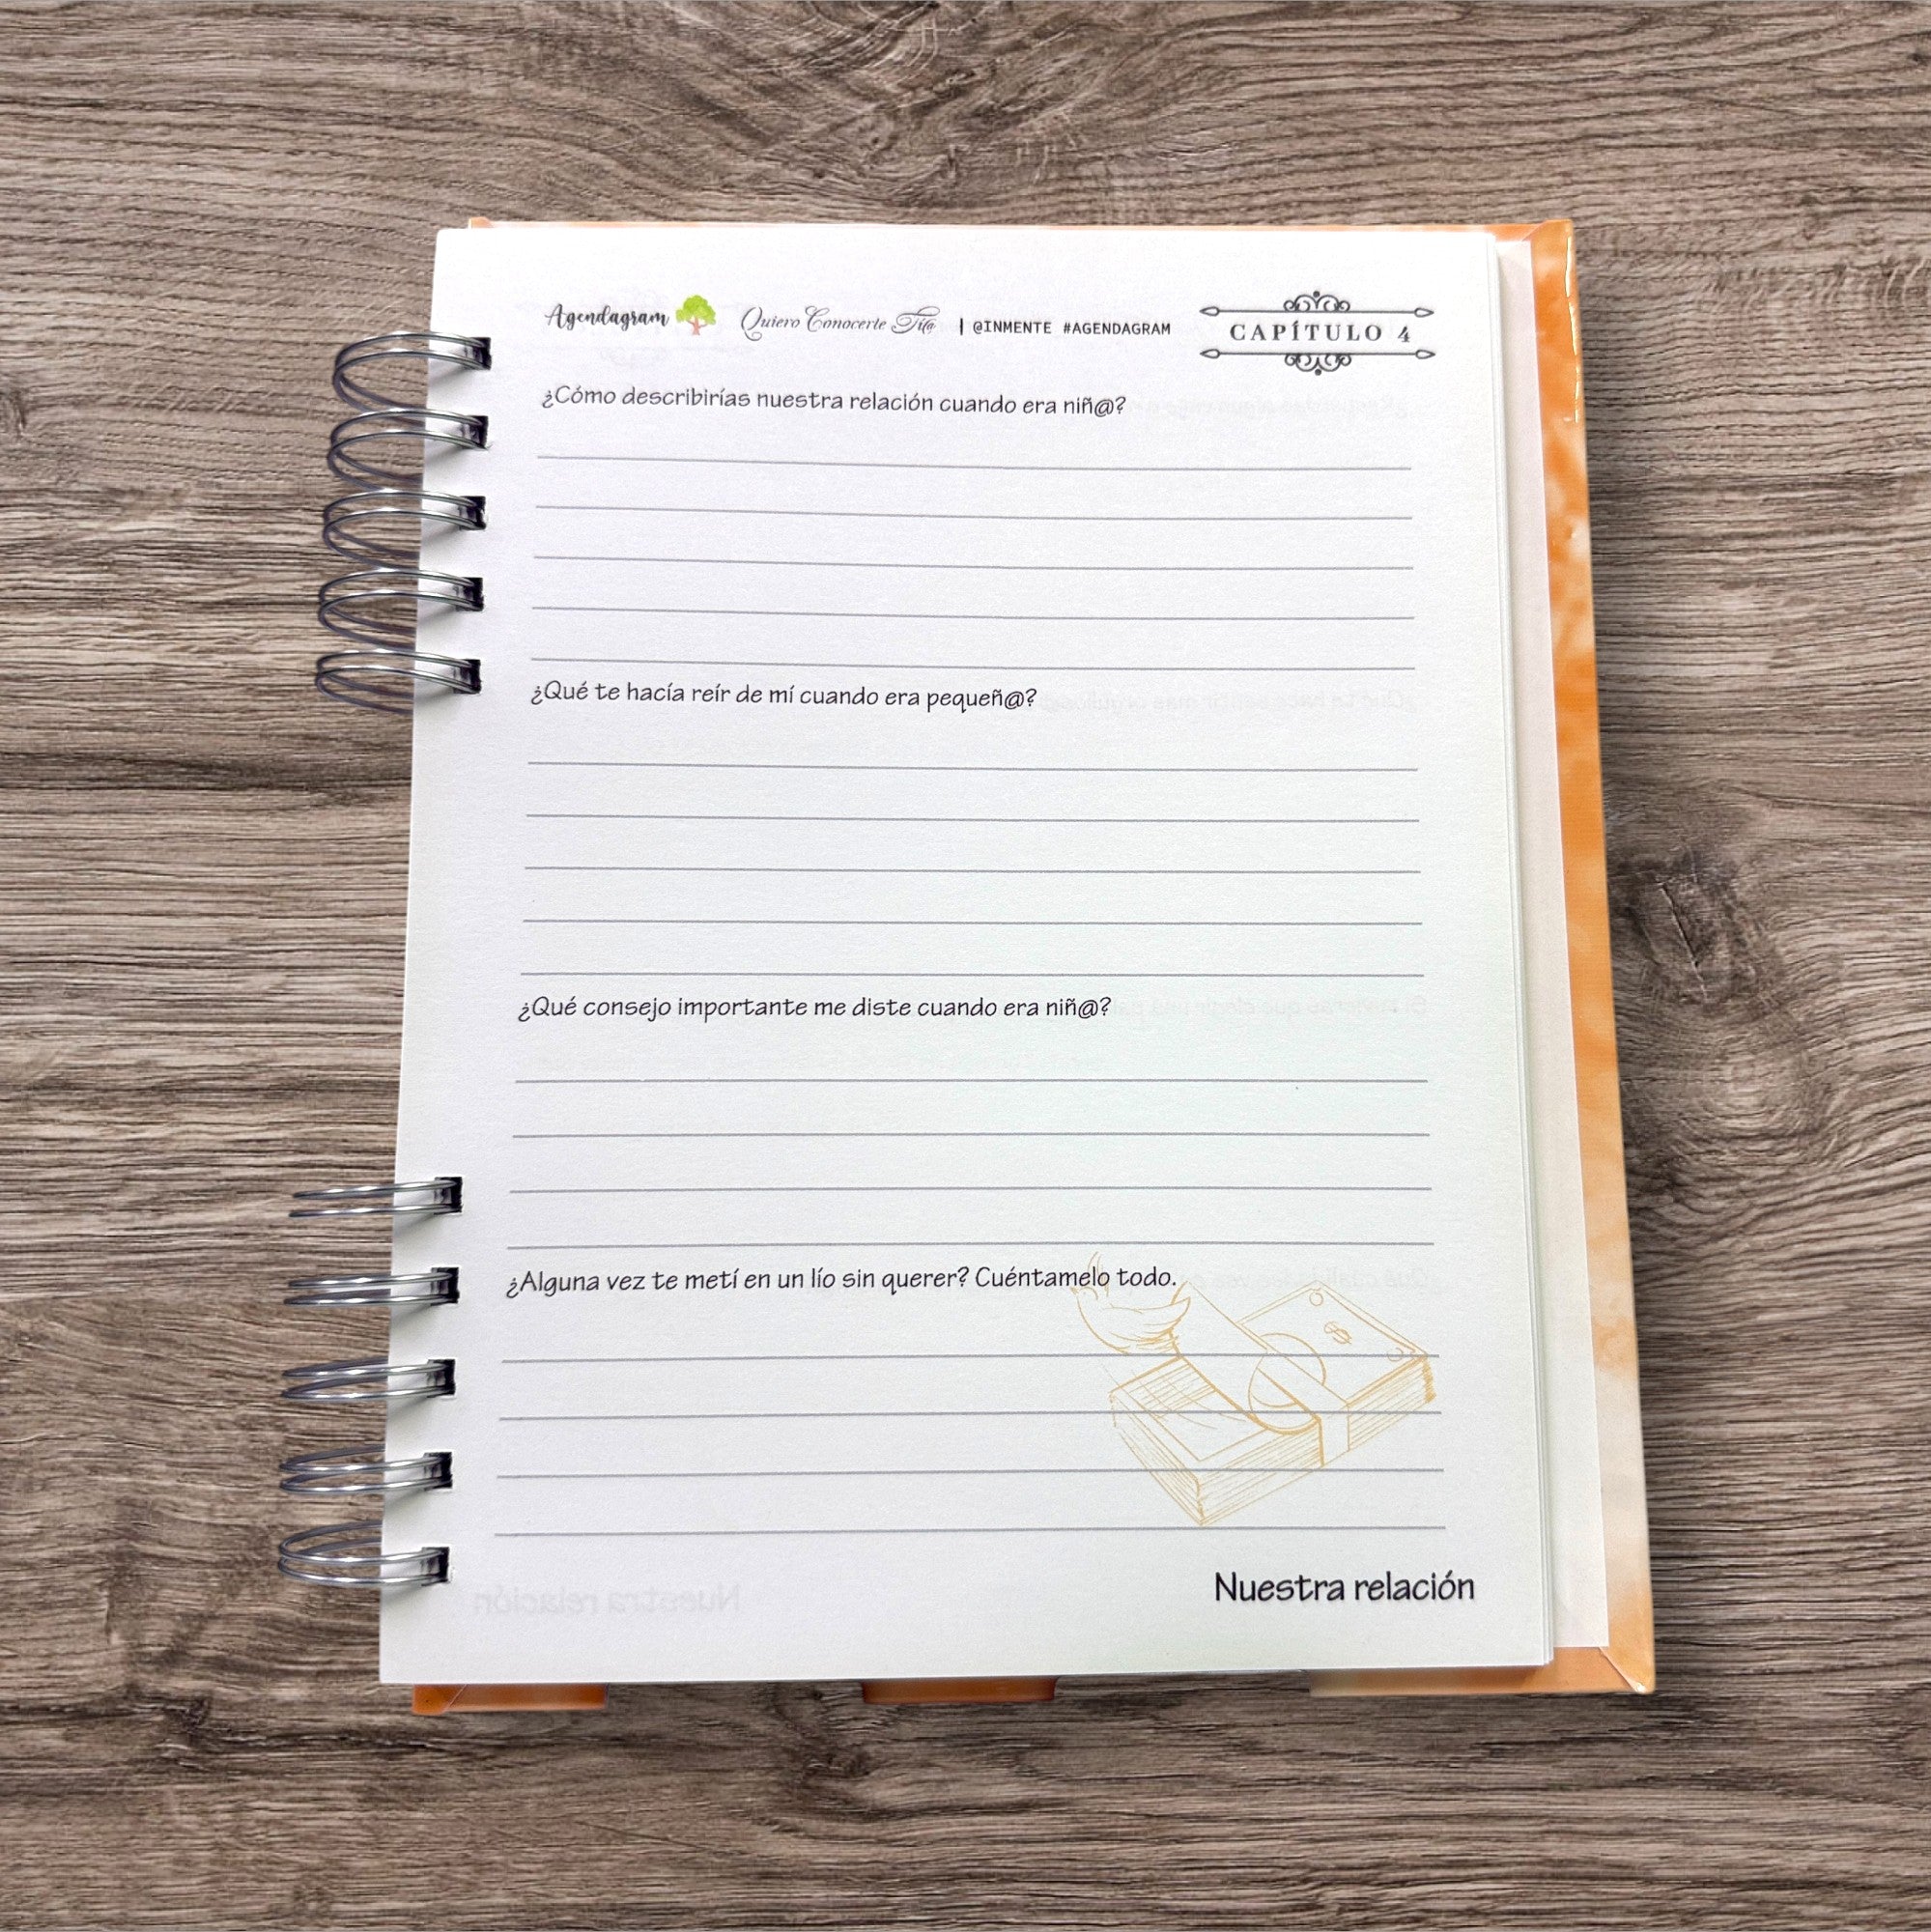 Agendagram Quiero Conocerte Ti@ | @INMENTE #AGENDAGRAM
CAPÍTULO 4
¿Cómo describirías nuestra relación cuando era niñ@?
¿Qué te hacía reír de mí cuando era pequeñ@?
¿Qué consejo importante me diste cuando era niñ@?
¿Alguna vez te metí en un lío sin querer? Cuéntamelo todo.
$
Nuestra relación
Nuestra relación